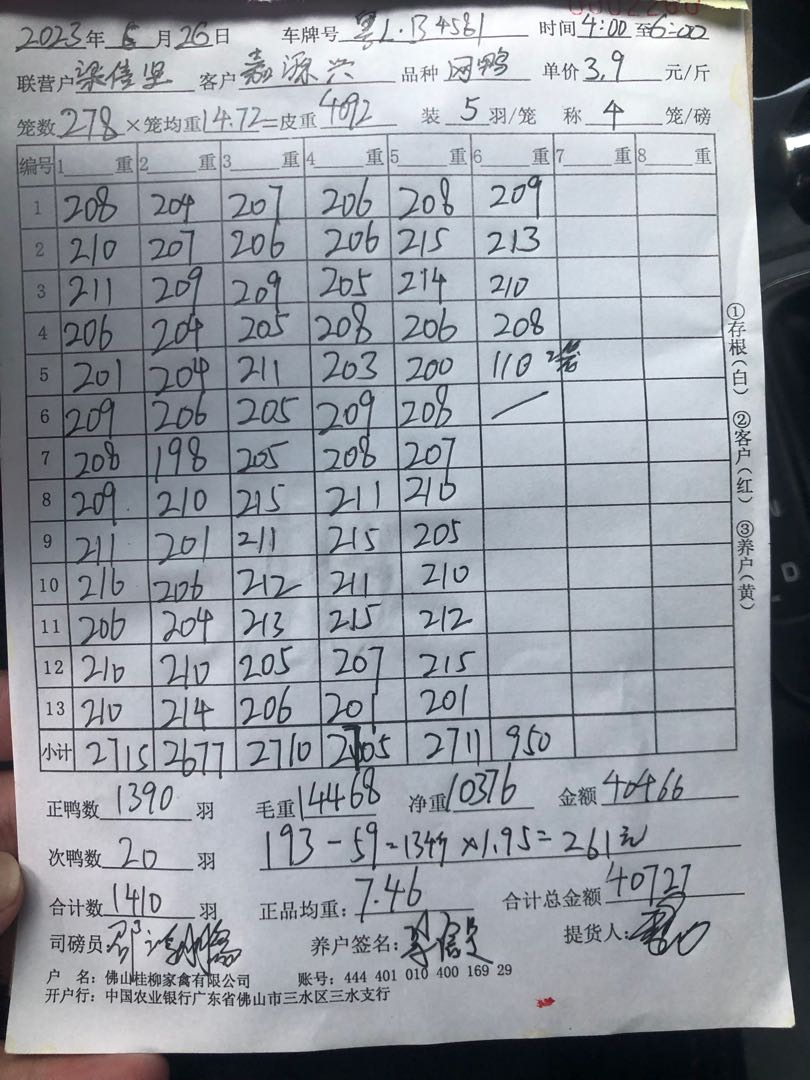 2023年5月26日 车牌号 粤L·B4581 时间4:00至6:00
联营户 客户嘉源兴 品种网鸭 单价3.9元/斤
笼数278×笼均重14.72=皮重4092 装5羽/笼 称4笼/磅
编号 1 重 2 重 3 重 4 重 5 重 6 重 7 重 8 重
1 208 204 207 206 208 209
2 210 207 206 206 215 213
3 211 209 209 205 214 210
4 206 204 205 208 206 208
5 201 204 211 203 200 110
6 209 206 205 209 208
7 208 198 205 208 207
8 209 210 215 211 210
9 211 201 211 215 205
10 216 206 212 211 210
11 206 204 213 215 212
12 210 210 205 207 215
13 210 214 206 201 201
小计 2715 2677 2710 2705 2711 950
①存根(白) ②客户(红) ③养户(黄)
正鸭数1390羽 毛重14468 净重10376 金额40466
次鸭数20羽 193-59=134斤×1.95=261元
合计数1410羽 正品均重:7.46 合计总金额40727
司磅员 养户签名: 提货人:
户 名:佛山桂柳家禽有限公司 账号:444 401 010 400 169 29
开户行:中国农业银行广东省佛山市三水区三水支行